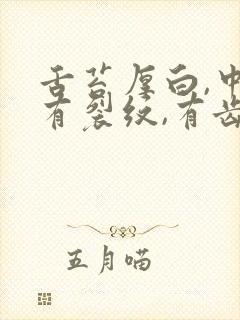 舌苔厚白,中
有裂纹,有齿
五月喵